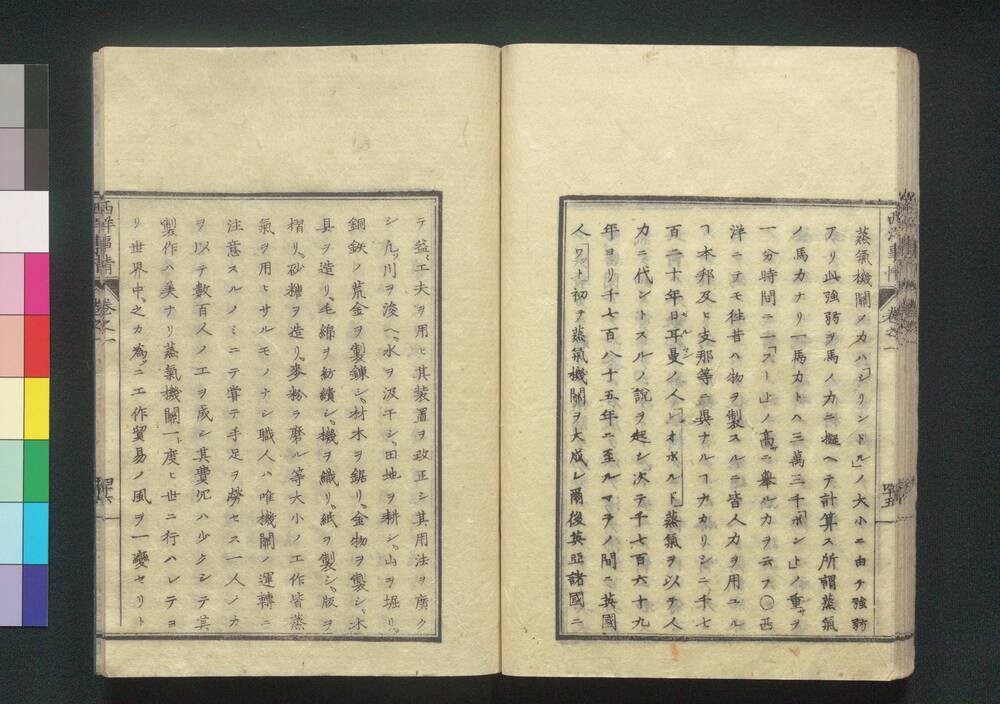 蒸氣機關ノ力ハ「シリンドル」ノ大小ニ由テ強弱
アリ此強弱ヲ馬ノ力ニ擬ヘテ計算ス所謂蒸氣
ノ馬力ナリ一馬力トハ三萬三千「ポンド」ノ重サヲ
一分時間ニ一「フート」ノ高サニ擧ルカヲ云フ〇西
洋ニテモ往昔ハ物ヲ製スルニ皆人力ヲ用ユル
ヿ本邦及ヒ支那等ニ異ナルヿナカリシニ千七
百二十年日耳曼ノ人「レオポルド」蒸氣ヲ以テ人
力ニ代ントスルノ説ヲ起シ次テ千七百六十九
年ヨリ千七百八十五年ニ至ルマテノ間ニ英國
人「ワット」初テ蒸氣機關ヲ大成シ爾後英亞諸國ニ
テ益〻工夫ヲ用ヒ其装置ヲ改正シ其用法ヲ廣ク
シ凢ソ川ヲ浚ヘ、水ヲ汲干シ、田地ヲ耕シ、山ヲ堀リ、
銅鉄ノ荒金ヲ製錬シ、材木ヲ鋸リ、金物ヲ製シ、木
具ヲ造リ、毛綿ヲ紡績シ、機ヲ織リ、紙ヲ製シ、版ヲ
摺リ、砂糖ヲ造リ、麥粉ヲ磨ル等大小ノ工作皆蒸
氣ヲ用ヒサルモノナシ職人ハ唯機關ノ運轉ニ
注意スルノミニテ嘗テ手足ヲ勞セス一人ノ力
ヲ以テ數百人ノ工ヲ成シ其費冗ハ少クシテ其
製作ハ美ナリ蒸氣機關一度ヒ世ニ行ハレテヨ
リ世界中之カ為メニ工作貿易ノ風ヲ一變セリト
西洋事情
卷之一
四十五
西洋事情
卷之一
四十六